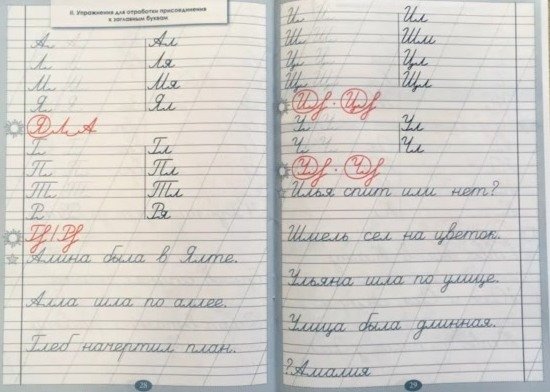 II. Упражнения для отработки присоединения
к заглавным буквам
А Ал
Л Ля
М Мя
Я Ял
Я Л А
Г Гл
П Пл
Т Тл
Р Ря
Алина была в Ялте.
Алла шла по аллее.
Глеб начертил план.
28
И Ил
Ш Шм
Ц Цл
Щ Щл
И Ц
У Ул
Ч Чл
У Ч
Илья спит или нет?
Шмель сел на цветок.
Ульяна шла по улице.
Улица была длинная.
? Амалия
29